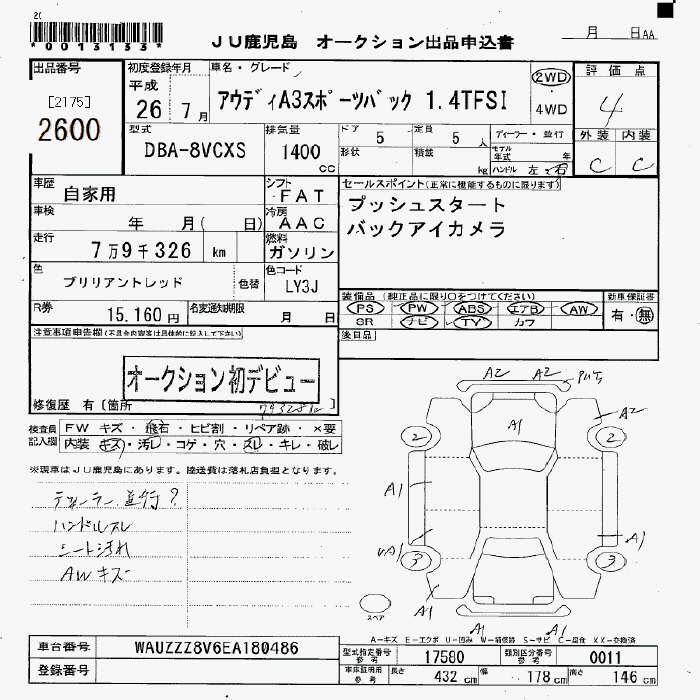 *0013133*
JU鹿児島 オークション出品申込書
月 日AA
出品番号
[2175]
2600
初度登録年月
平成
26 7月
車名・グレード
アウディA3スポーツバック 1.4TFSI
2WD
4WD
評価点
4
外装 内装
C C
型式
DBA-8VCXS
排気量
1400
cc
ドア 5
定員 5 人
形状
積載 kg
ディーラー・並行
モデル年式 年
ハンドル 左・右
車歴
自家用
シフト
FAT
車検
年 月( 日)
冷房
AAC
走行
7万9千326 km
燃料
ガソリン
色
ブリリアントレッド
色替
色コード
LY3J
R券
15,160円
名変通知期限
月 日
セールスポイント(正常に機能するものに限ります)
プッシュスタート
バックアイカメラ
装備品(純正品に限り○をつけてください)
PS PW ABS エアB AW
SR ナビ TV カワ
新車保証書
有・無
後日品
注意事項申告欄(不具合内容等は具体的に記入して下さい)
オークション初デビュー
修復歴 有[箇所 ]
検査員記入欄
FW キズ・飛石・ヒビ割・リペア跡・×要
内装・キズ・汚レ・コゲ・穴・スレ・キレ・破レ
※現車はJU鹿児島にあります。陸送費は落札店負担となります。
ディーラー 並行?
ハンドルスレ
シート汚れ
AWキズ
A2 A2
A2
A1
2 2
A1
A1
3 3
A1
A1 A1
スペア
A-キズ E-エクボ U-凹み W-補修跡 S-サビ C-腐食 XX-交換済
車台番号
WAUZZZ8V6EA180486
登録番号
型式指定番号
参考
17580
類別区分番号
参考
0011
車体証明用
参考
長さ 432 cm
幅 178 cm
高さ 146 cm